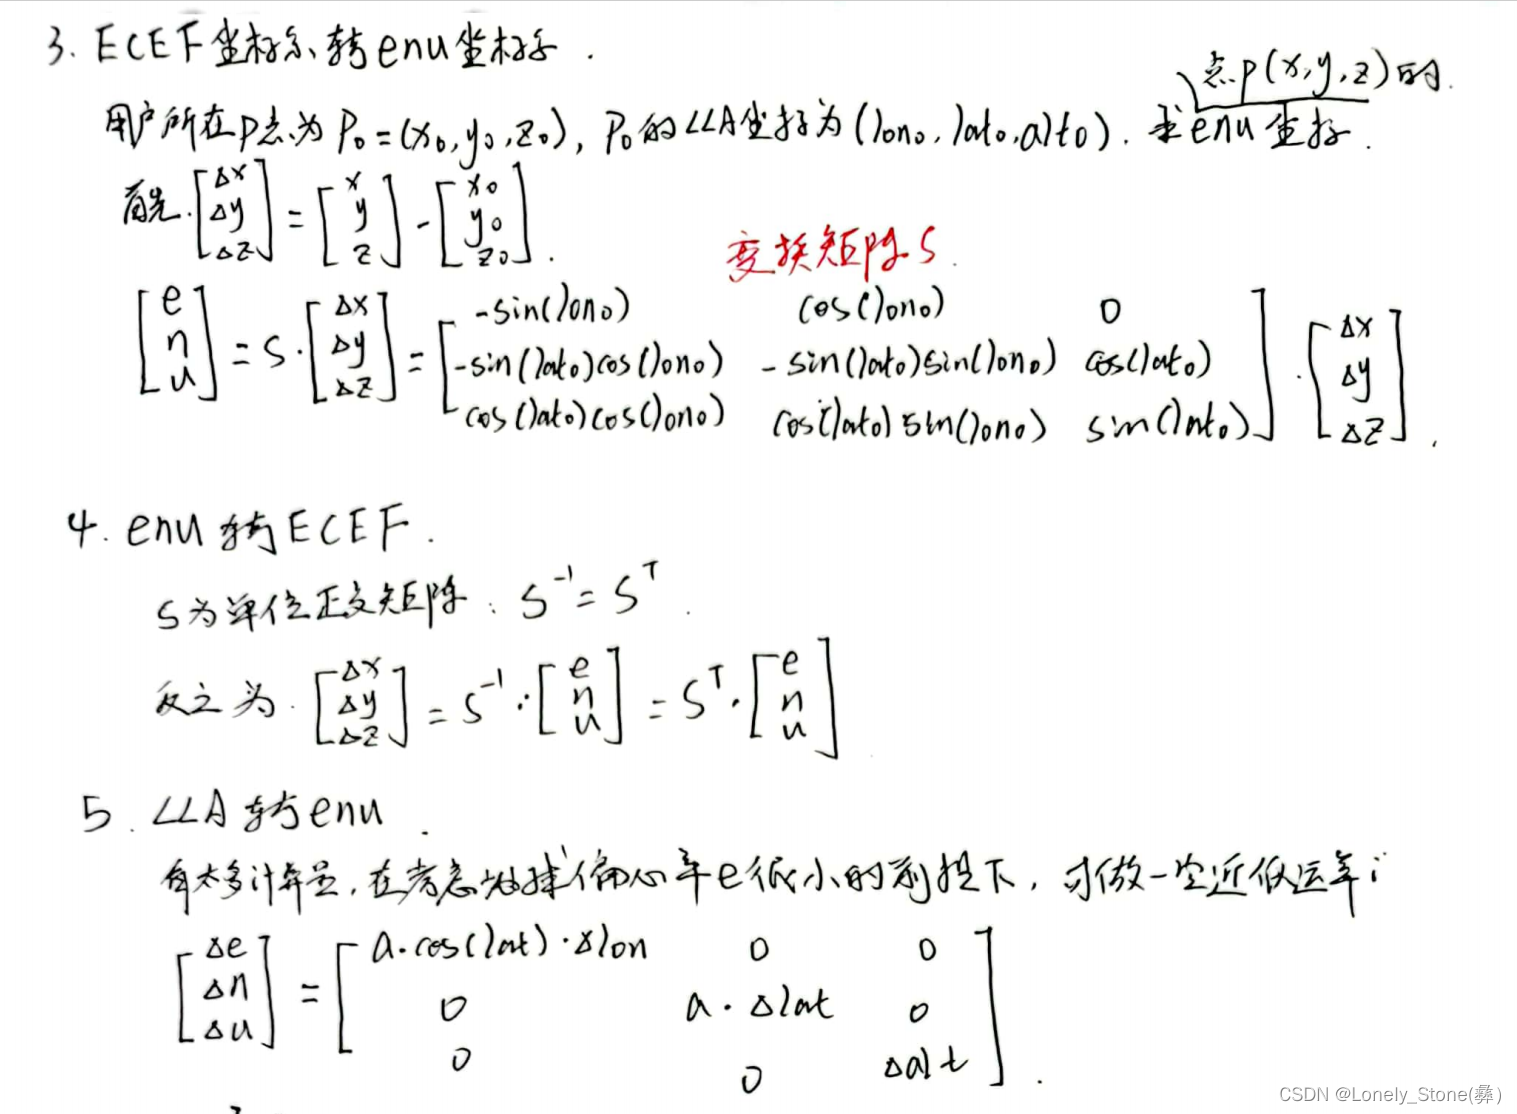 3. ECEF坐标系转enu坐标系.
点p(x,y,z)的
用户所在P点为P₀=(x₀,y₀,z₀), P₀的LLA坐标为(lon₀,lat₀,alt₀). 求enu坐标.
首先. [Δx Δy Δz] = [x y z] - [x₀ y₀ z₀].
变换矩阵S.
[e n u] = S·[Δx Δy Δz] = [-sin(lon₀) cos(lon₀) 0
-sin(lat₀)cos(lon₀) -sin(lat₀)sin(lon₀) cos(lat₀)
cos(lat₀)cos(lon₀) cos(lat₀)sin(lon₀) sin(lat₀)] · [Δx Δy Δz].
4. enu转ECEF.
S为单位正交矩阵: S⁻¹=Sᵀ.
反之为. [Δx Δy Δz] = S⁻¹·[e n u] = Sᵀ·[e n u]
5. LLA转enu.
有太多计算量,在考虑地球偏心率e很小的前提下,可做一定近似运算;
[Δe Δn Δu] = [a·cos(lat)·Δlon 0 0
0 a·Δlat 0
0 0 Δalt].
CSDN @Lonely_Stone(彝)